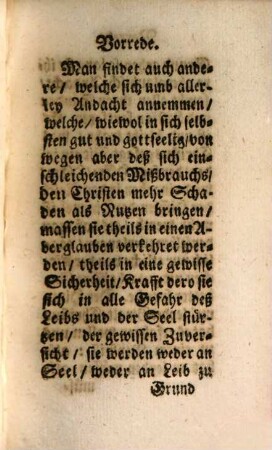 Vorrede.
Man findet auch ande-
re/ welche sich umb aller-
ley Andacht annemmen/
welche/ wiewol in sich selb-
sten gut und gottseelig/ von
wegen aber deß sich ein-
schleichenden Mißbrauchs/
den Christen mehr Scha-
den als Nutzen bringen/
massen sie theils in einen A-
berglauben verkehret wer-
den/ theils in eine gewisse
Sicherheit/ Krafft dero sie
sich in alle Gefahr deß
Leibs und der Seel stür-
tzen/ der gewissen Zuver-
sicht/ sie werden weder an
Seel/ weder an Leib zu
Grund